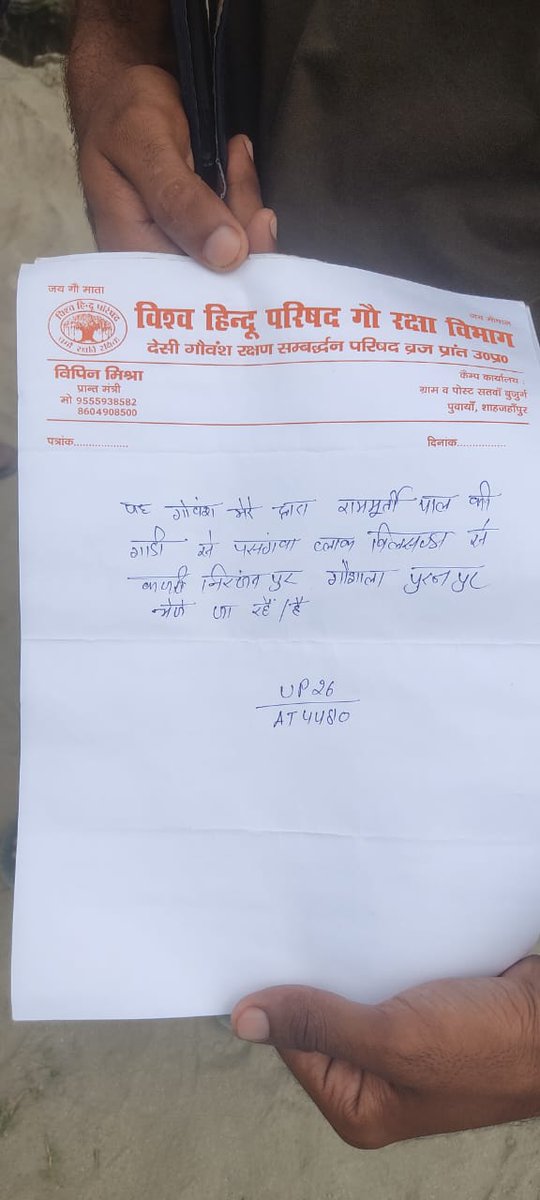 जय गौ माता
जय गोपाल
विश्व हिन्दू परिषद
विश्व हिन्दू परिषद गौ रक्षा विभाग
देसी गौवंश रक्षण सम्बर्द्धन परिषद ब्रज प्रांत उ०प्र०
विपिन मिश्रा
प्रान्त मंत्री
मो 9555938582
8604908500
कैम्प कार्यालय :
ग्राम व पोस्ट सतवाँ बुजुर्ग
पुवायाँ, शाहजहाँपुर
पत्रांक.................
दिनांक...............
यह गोवंश मेरे द्वारा राममूर्ती पाल की
गाडी से पसगंवा ब्लाक से
निरंजनपुर गौशाला पुरनपुर
भेजे जा रहें/है
UP26
AT4480